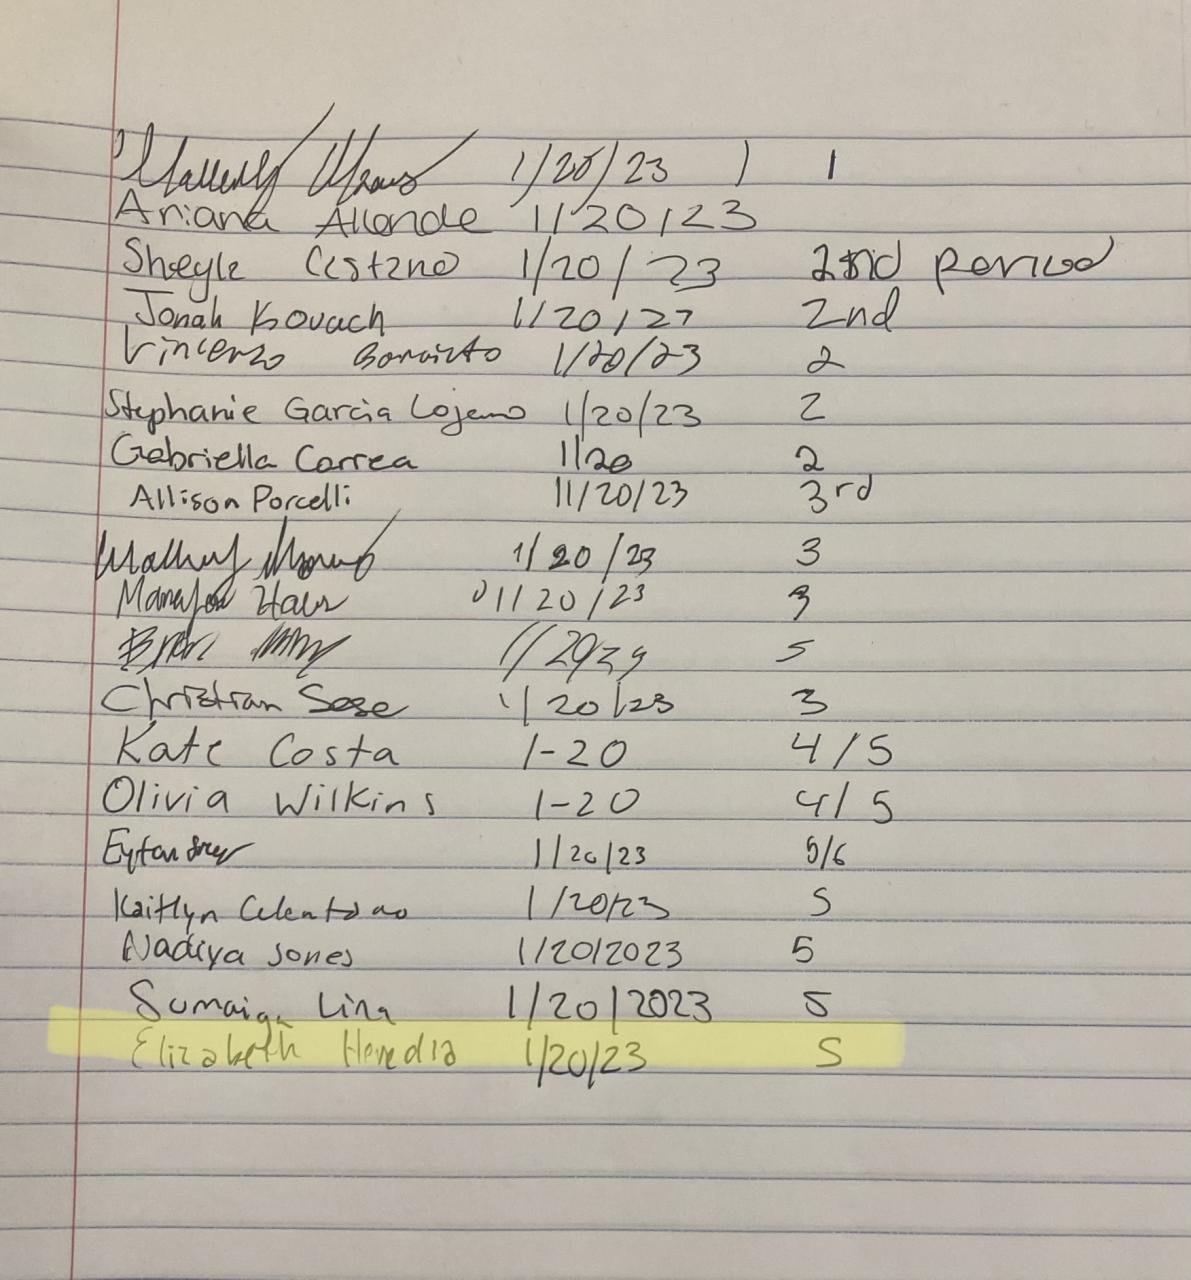 1/20/23 1 1
Ariana Allende 1/20/23
Sheyle 1/20/23 2nd period
Jonah Kovach 1/20/23 2nd
Vincenzo 1/20/23 2
Stephanie Garcia Lojano 1/20/23 2
Gabriella Correa 1/20 2
Allison Porcelli 11/20/23 3rd
1/20/23 3
01/20/23 3
5
Christian Sese 1/20/23 3
Kate Costa 1-20 4/5
Olivia Wilkins 1-20 4/5
Eytan 1/20/23 5/6
Kaitlyn Celentano 1/20/23 5
Nadiya Jones 1/20/2023 5
Sumaiya Lina 1/20/2023 5
Elizabeth Heredia 1/20/23 5